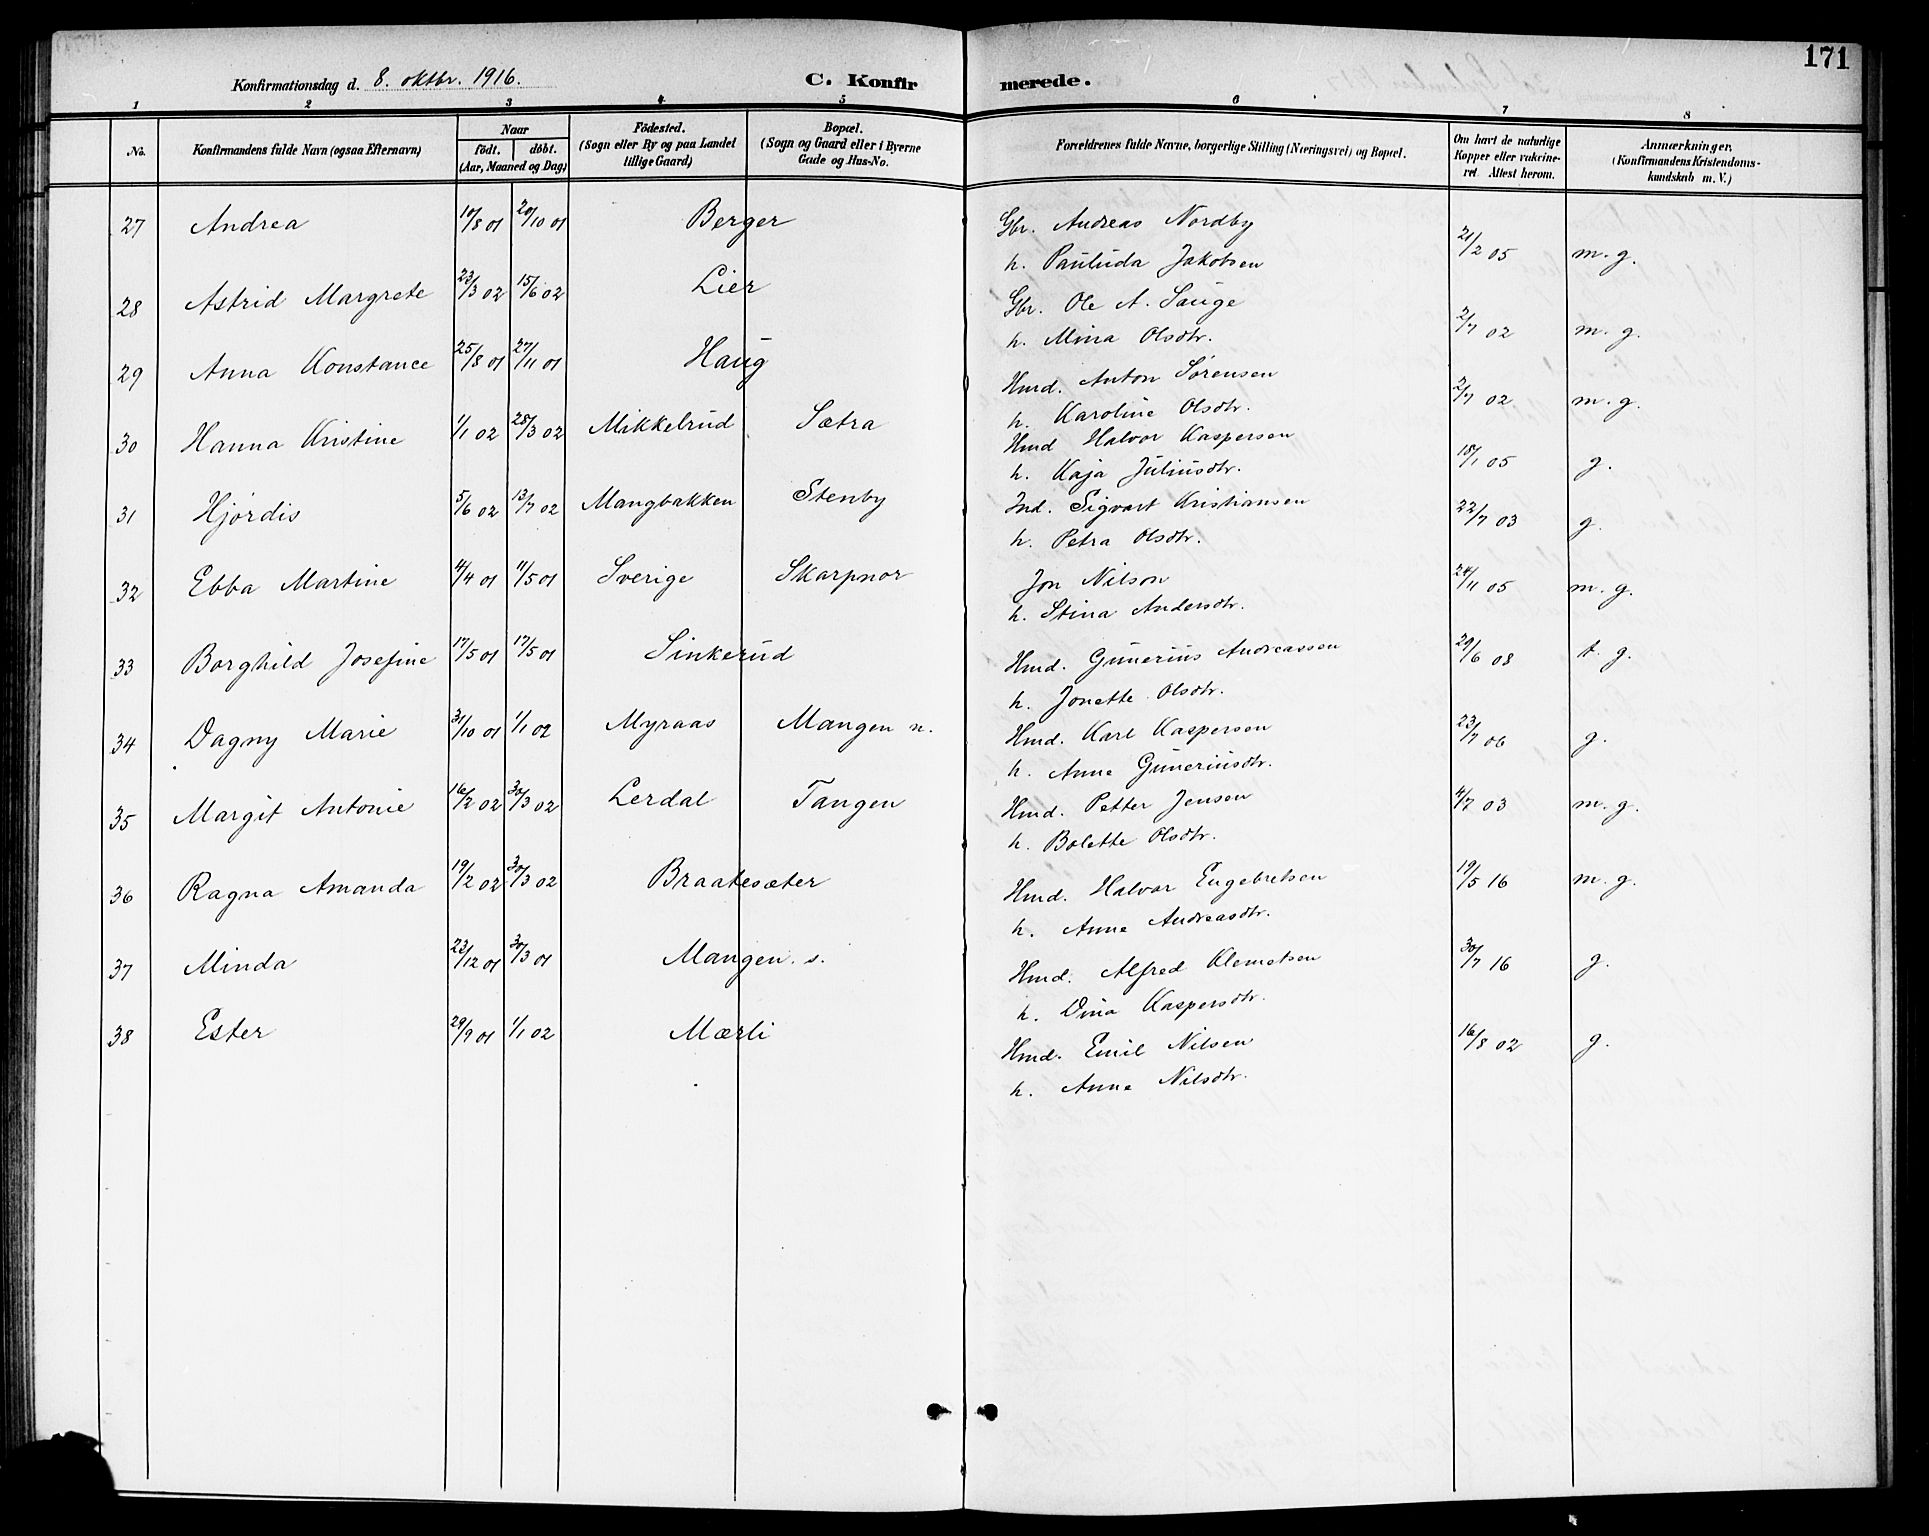 171
Konfirmationsdag d. 8. oktbr. 1916.
C. Konfirmerede.
1 2 3 4 5 6 7 8
No.
Konfirmandens fulde Navn (ogsaa Efternavn)
Naar
födt. döbt.
(Aar, Maaned og Dag)
Födested.
(Sogn eller By og paa Landet
tillige Gaard)
Bopæl.
(Sogn og Gaard eller i Byerne
Gade og Hus-No.
Forældrenes fulde Navne, borgerlige Stilling (Næringsvei) og Bopæl.
Om havt de naturlige
Kopper eller vakcine-
ret. Attest herom.
Anmærkninger.
(Konfirmandens Kristendoms-
kundskab m. V.)
27 Andrea 10/8 01 20/10 01 Berger Gbr. Andreas Nordby 21/2 05 m. g.
h. Paulida Jakobsen
28 Astrid Margrete 23/3 02 15/6 02 Lier Gbr. Ole A. Sauge 2/7 02 m. g.
h. Mina Olsdtr.
29 Anna Konstance 25/8 01 27/11 01 Haug Hmd. Anton Sørensen 2/7 02 m. g.
h. Karoline Olsdtr.
30 Hanna Kristine 1/1 02 28/3 02 Mikkelrud Sætra Hmd Halvor Kaspersen 18/1 05 g.
h. Kaja Juliusdtr.
31 Hjørdis 5/6 02 13/7 02 Mangbakken Stenby Ind. Sigvart Kristiansen 22/7 03 g.
h. Petra Olsdtr.
32 Ebba Martine 4/4 01 11/5 01 Sverige Skarpnor Jon Nilson 24/11 05 m. g.
h. Stina Andersdtr.
33 Borghild Josefine 17/5 01 17/5 01 Sinkerud Hmd. Gunerius Andreassen 29/6 08 t. g.
h. Jonette Olsdtr.
34 Dagny Marie 31/10 01 1/1 02 Myraas Mangen n. Hmd. Karl Kaspersen 23/7 06 g.
h. Anne Guneriusdtr.
35 Margit Antonie 16/2 02 30/3 02 Lerdal Tangen Hmd. Petter Jensen 4/7 03 m. g.
h. Bolette Olsdtr.
36 Ragna Amanda 19/2 02 30/3 02 Braatesæter Hmd. Halvor Engebretsen 19/5 16 m. g.
h. Anne Andreasdtr.
37 Minda 23/12 01 30/3 01 Mangen. s. Hmd. Alfred Klemetsen 30/7 16 g.
h. Dina Kaspersdtr.
38 Ester 29/9 01 1/1 02 Mærli Hmd. Emil Nilsen 16/8 02 g.
h. Anne Nilsdtr.